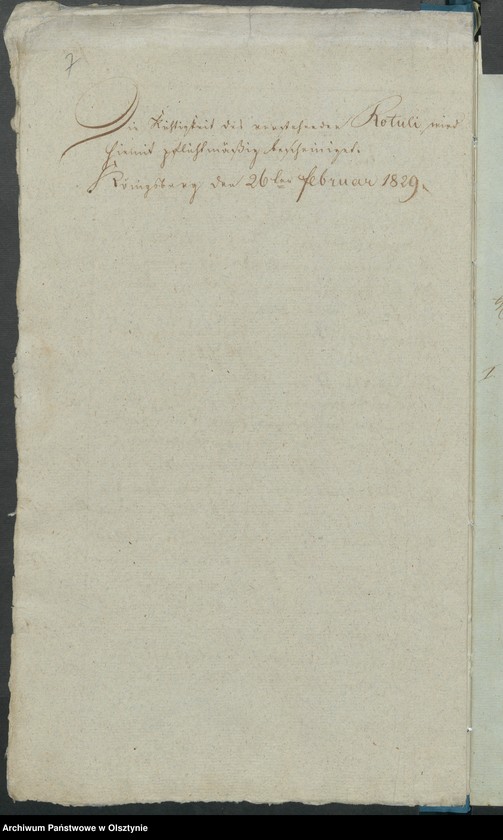 7
Die Richtigkeit des vorstehenden Rotuli, wird
hiemit pflichtmäßig bescheiniget.
Königsberg den 26ten Februar 1829.
1
Archiwum Państwowe w Olsztynie